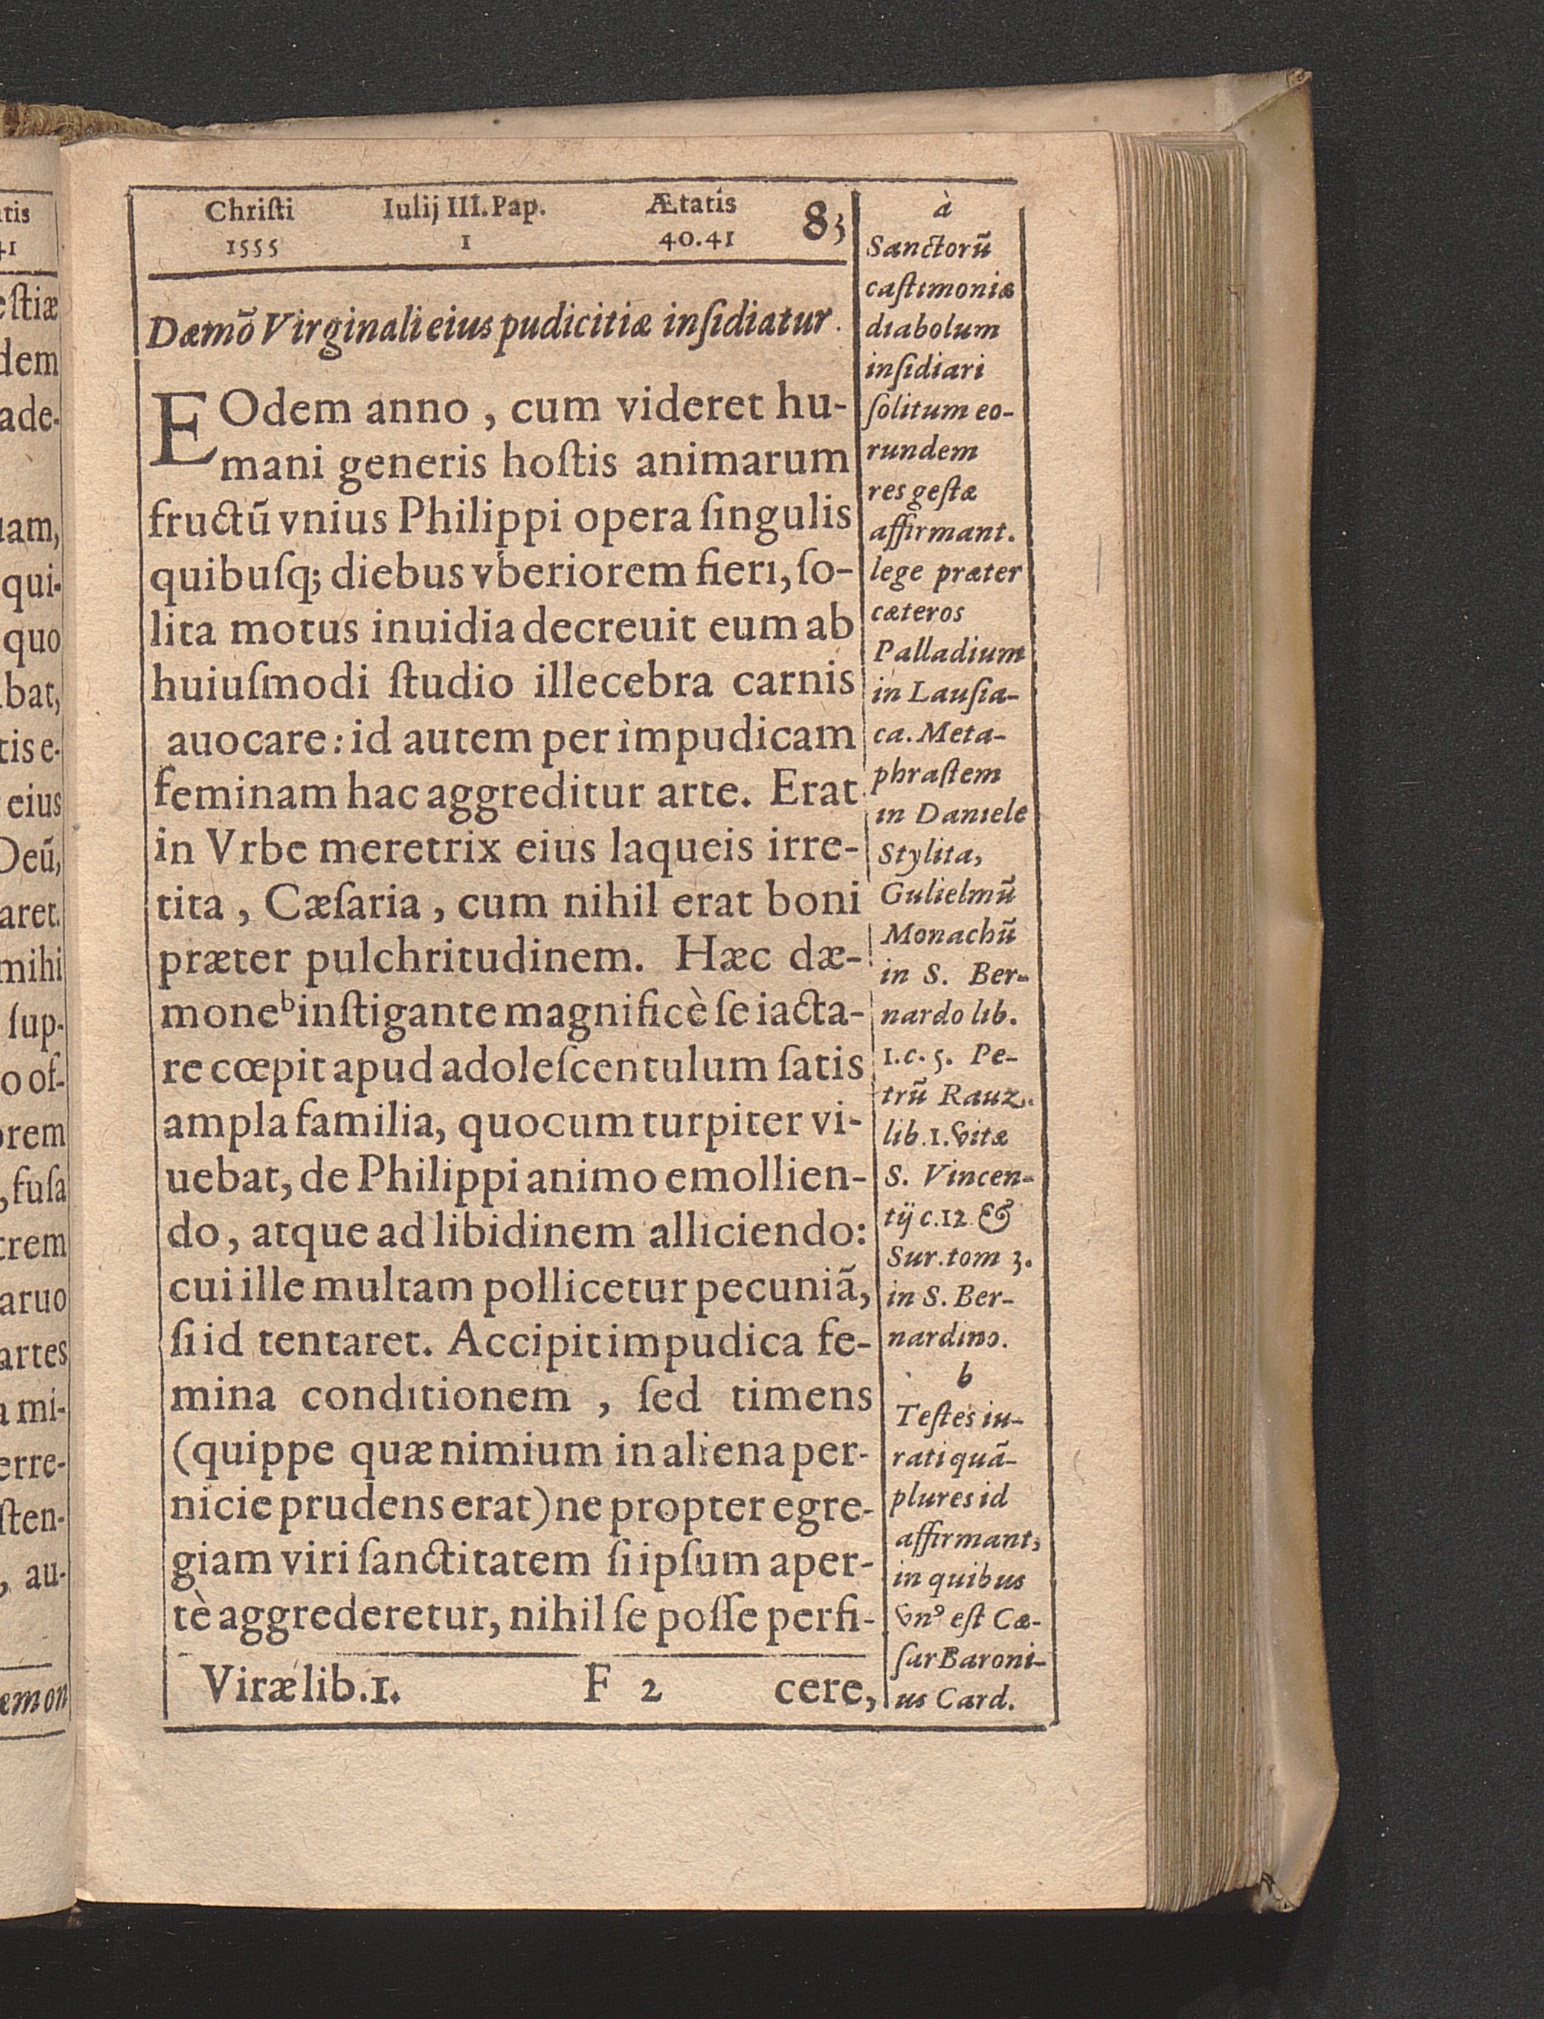 Chriſti Iulij III. Pap. Ætatis 83
1555 1 40.41
Dæmõ Virginali eius pudicitiæ inſidiatur.
EOdem anno , cum videret hu-
mani generis hoſtis animarum
fructũ vnius Philippi opera ſingulis
quibuſq; diebus vberiorem fieri, ſo-
lita motus inuidia decreuit eum ab
huiuſmodi ſtudio illecebra carnis
auocare: id autem per impudicam
feminam hac aggreditur arte. Erat
in Vrbe meretrix eius laqueis irre-
tita , Cæſaria , cum nihil erat boni
præter pulchritudinem. Hæc dæ-
mone b inſtigante magnificè ſe iacta-
re cœpit apud adoleſcentulum ſatis
ampla familia, quocum turpiter vi-
uebat, de Philippi animo emollien-
do, atque ad libidinem alliciendo:
cui ille multam pollicetur pecuniã,
ſi id tentaret. Accipit impudica fe-
mina conditionem , ſed timens
(quippe quæ nimium in aliena per-
nicie prudens erat) ne propter egre-
giam viri ſanctitatem ſi ipſum aper-
tè aggrederetur, nihil ſe poſſe perfi-
Vitæ lib.1. F 2 cere,
à
Sanctorũ
caſtimoniæ
diabolum
inſidiari
ſolitum eo-
rundem
res geſtæ
affirmant.
lege præter
cæteros
Palladium
in Lauſia-
ca. Meta-
phraſtem
in Daniele
Stylita,
Gulielmũ
Monachũ
in S. Ber-
nardo lib.
1.c.5. Pe-
trũ Rauz.
lib.1. vitæ
S. Vincen-
tij c.12 &
Sur.tom 3.
in S. Ber-
nardino.
b
Teſtes iu-
rati quã-
plures id
affirmant,
in quibus
vnꝰ eſt Cæ-
ſar Baroni-
us Card.